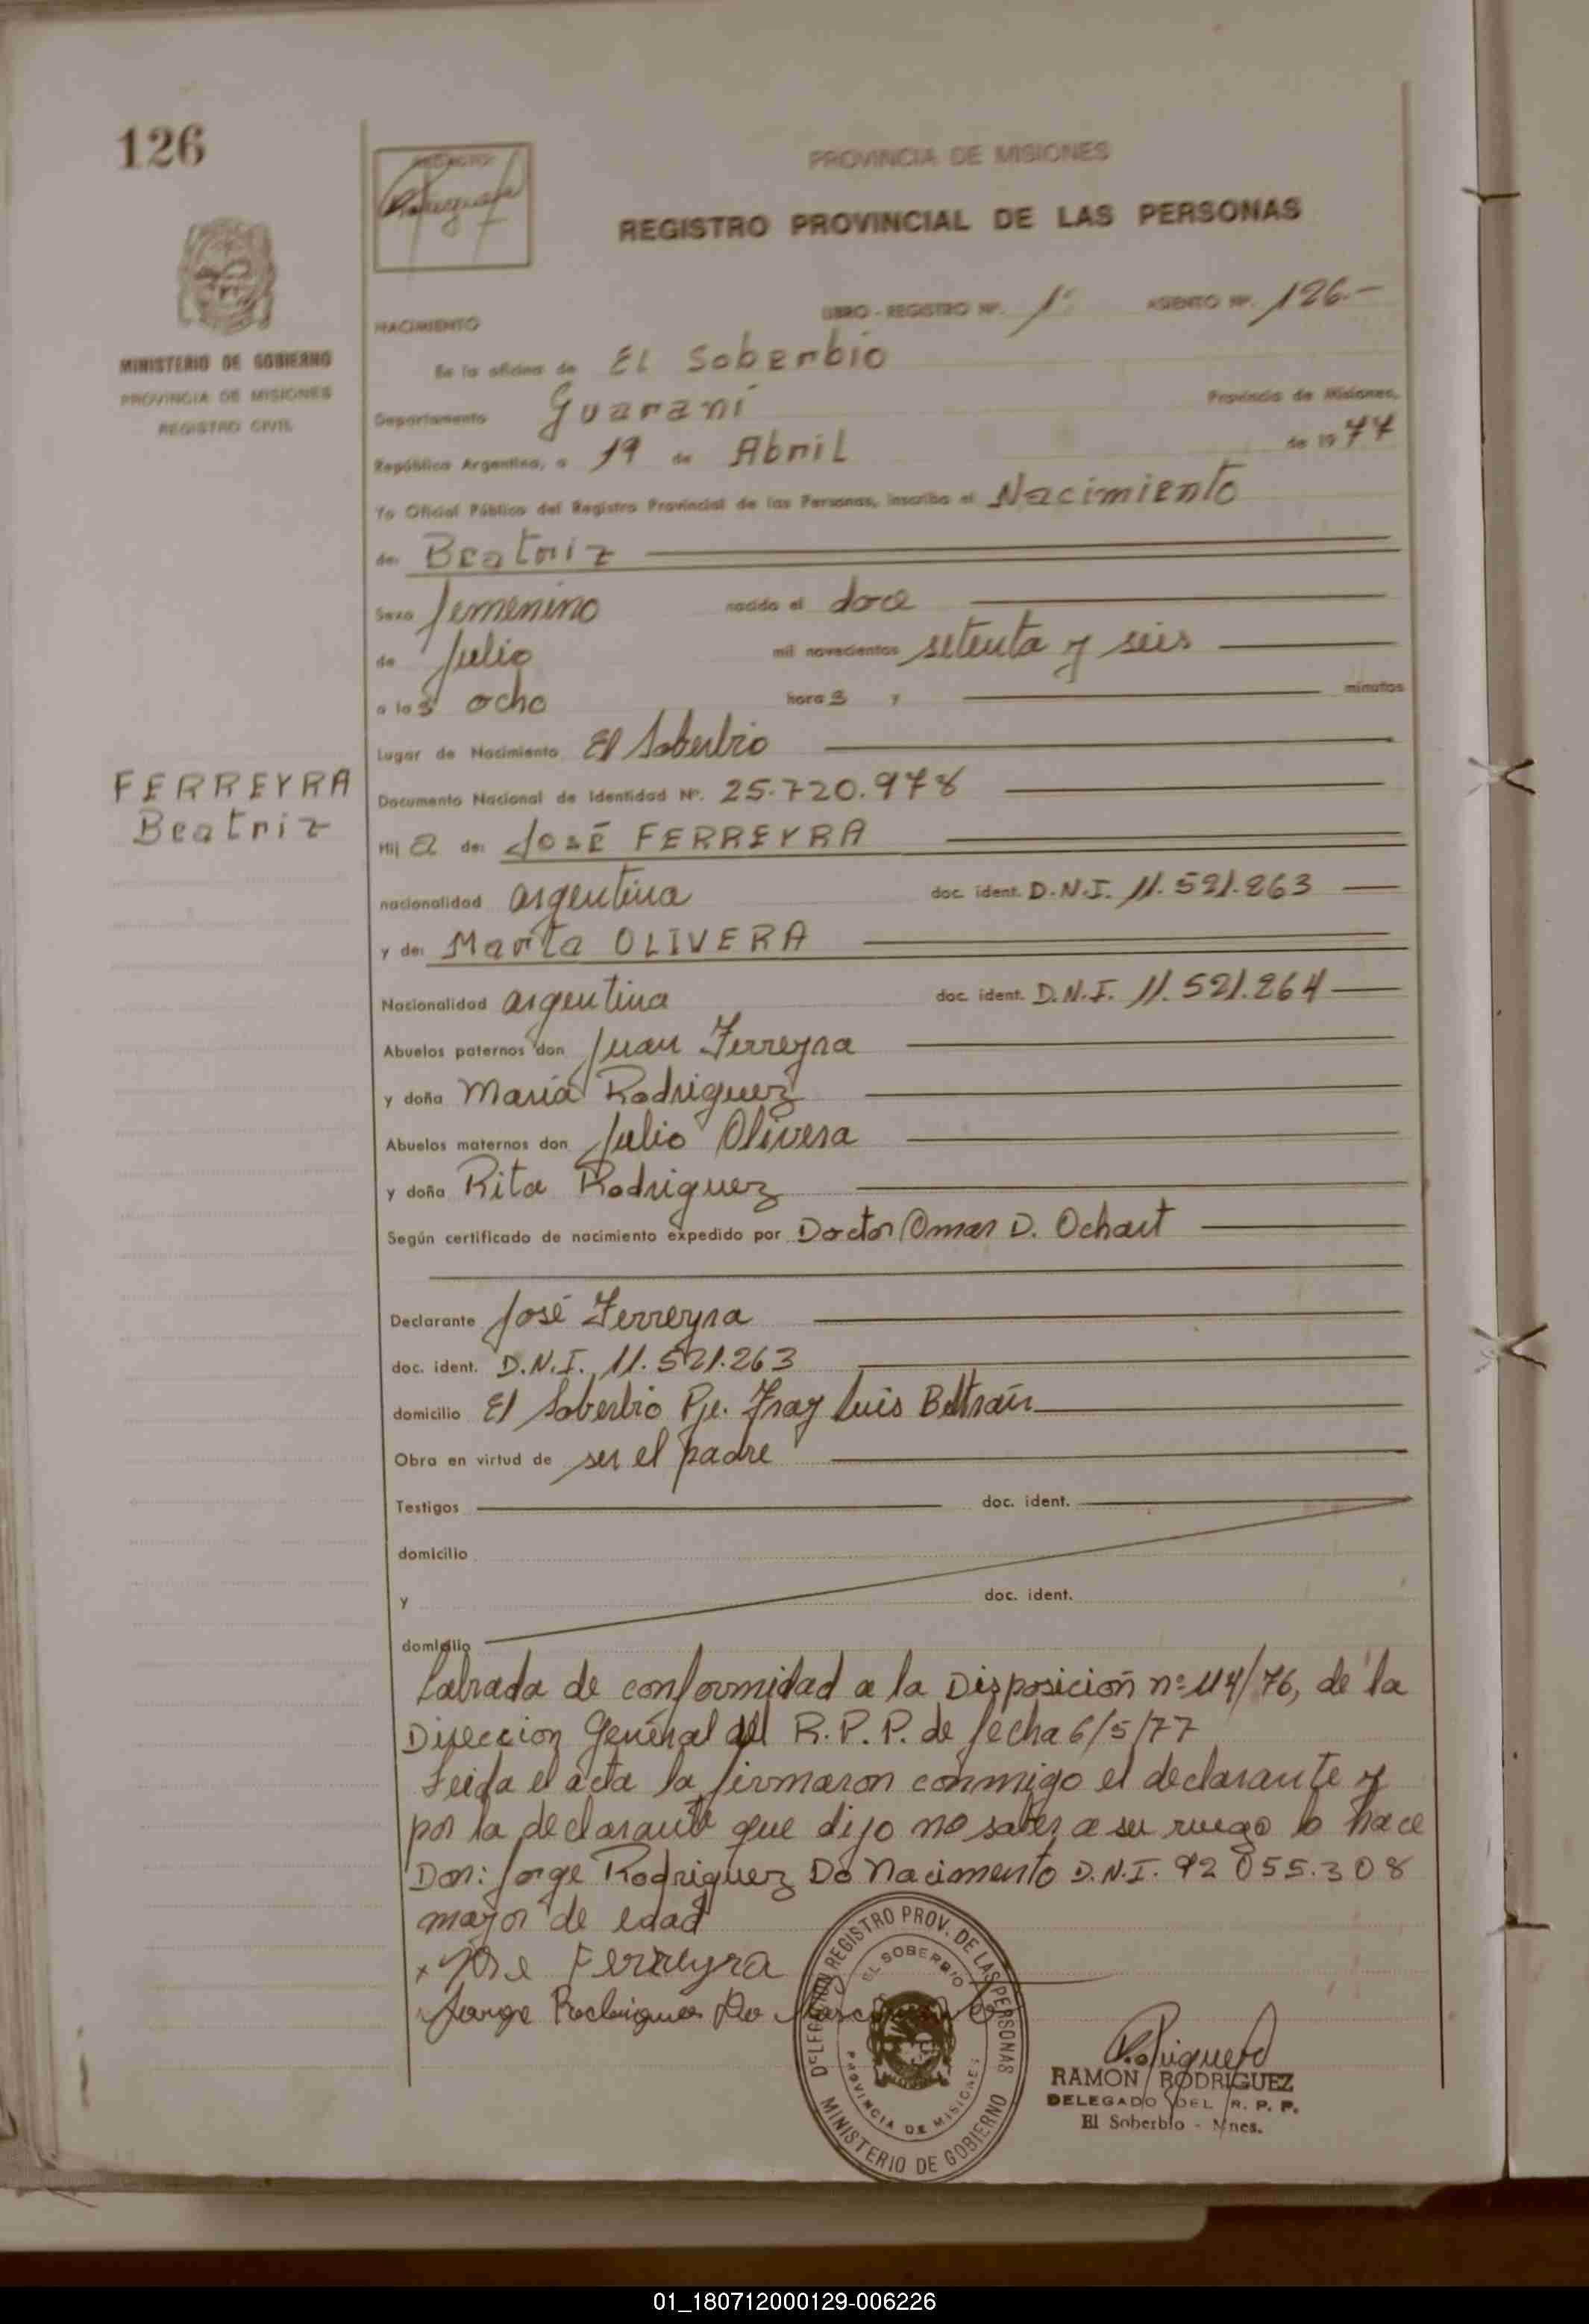 126
PROVINCIA DE MISIONES
REGISTRO PROVINCIAL DE LAS PERSONAS
MINISTERIO DE GOBIERNO
PROVINCIA DE MISIONES
REGISTRO CIVIL
NACIMIENTO LIBRO - REGISTRO Nº. 1º ASIENTO Nº. 126.-
En la oficina de El Soberbio
Departamento Guaraní Provincia de Misiones,
República Argentina, a 19 de Abril de 1977
Yo Oficial Público del Registro Provincial de las Personas, inscribo el Nacimiento
de: Beatriz
Sexo femenino nacido el doce
de Julio mil novecientos setenta y seis
a las ocho horas y minutos
Lugar de Nacimiento El Soberbio
FERREYRA
Beatriz
Documento Nacional de Identidad Nº. 25.720.978
Hij a de: José FERREYRA
nacionalidad argentina doc. ident. D.N.I. 11.521.263
y de: Marita OLIVERA
Nacionalidad argentina doc. ident. D.N.I. 11.521.264
Abuelos paternos don Juan Ferreyra
y doña María Rodriguez
Abuelos maternos don Julio Olivera
y doña Rita Rodriguez
Según certificado de nacimiento expedido por Doctor Omar D. Ochart
Declarante José Ferreyra
doc. ident. D.N.I. 11.521.263
domicilio El Soberbio Pje. Fray Luis Beltrán
Obra en virtud de ser el padre
Testigos doc. ident.
domicilio
y doc. ident.
domicilio
Labrada de conformidad a la Disposición nº 114/76, de la
Direccion General del R.P.P. de fecha 6/5/77
Leida el acta la firmaron conmigo el declarante y
por la declarante que dijo no saber a su ruego lo hace
Don: Jorge Rodriguez Do Nacimento D.N.I. 92 055.308
mayor de edad
x Jose Ferreyra
Jorge Rodrigues Do
DELEGACION REGISTRO PROV. DE LAS PERSONAS
EL SOBERBIO
PROVINCIA DE MISIONES
MINISTERIO DE GOBIERNO
RAMON RODRIGUEZ
DELEGADO DEL R. P. P.
El Soberbio - Mnes.
01_180712000129-006226